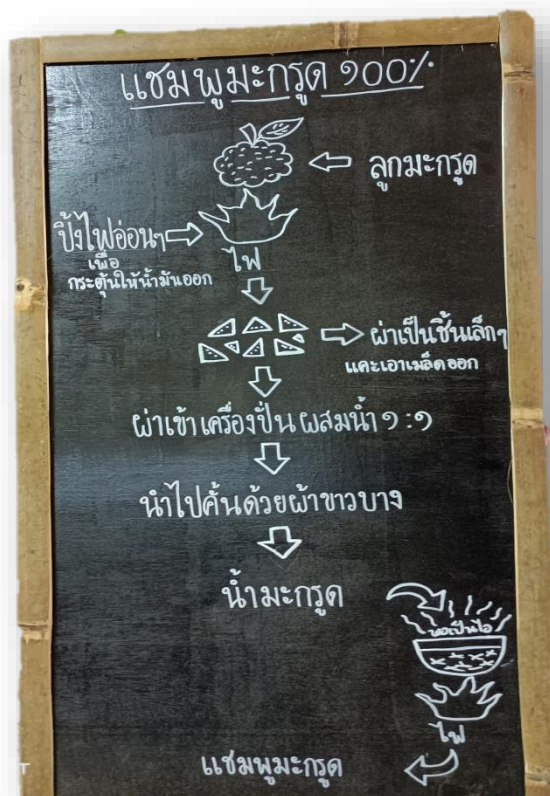 แชมพูมะกรูด ๑๐๐%
ลูกมะกรูด
ปิ้งไฟอ่อนๆ
เพื่อ
กระตุ้นให้น้ำมันออก
ไฟ
ผ่าเป็นชิ้นเล็กๆ
แคะเอาเมล็ดออก
ผ่าเข้าเครื่องปั่น ผสมน้ำ ๑:๑
นำไปคั้นด้วยผ้าขาวบาง
น้ำมะกรูด
พอเป็นไอ
ไฟ
แชมพูมะกรูด
T